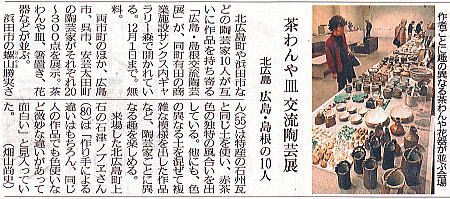 茶わんや皿 交流陶芸展
北広 広島・島根の10人
作者ごとに趣の異なる茶わんや花器が並ぶ会場
北広島町や浜田市な
どの陶芸家10人が互
いに作品を持ち寄る
「広島・島根交流陶芸
展」が、同町有田の商
業施設サンクス内ギャ
ラリー森で開かれてい
る。12月1日まで。無
料。
両市町のほか、広島
市、呉市、安芸太田町
の陶芸家がそれぞれ20
～300点を展示。茶
わんや皿、箸置き、花
器などが並ぶ。
浜田市の
勝美さ
ん(58)は特産の石州瓦
と同じ土を使い、赤茶
色の独特の風合いを出
している。他にも、色
の異なる土を混ぜて複
雑な模様を出した作品
など、陶芸家ごとに異
なる趣を楽しめる。
来場した北広島町上
石の石津ノブヱさん
(80)は「作り手による
違いはもちろん、同じ
人の作品でも色使いな
ど微妙な違いがあって
面白い」と見入ってい
た。(畑山尚史)